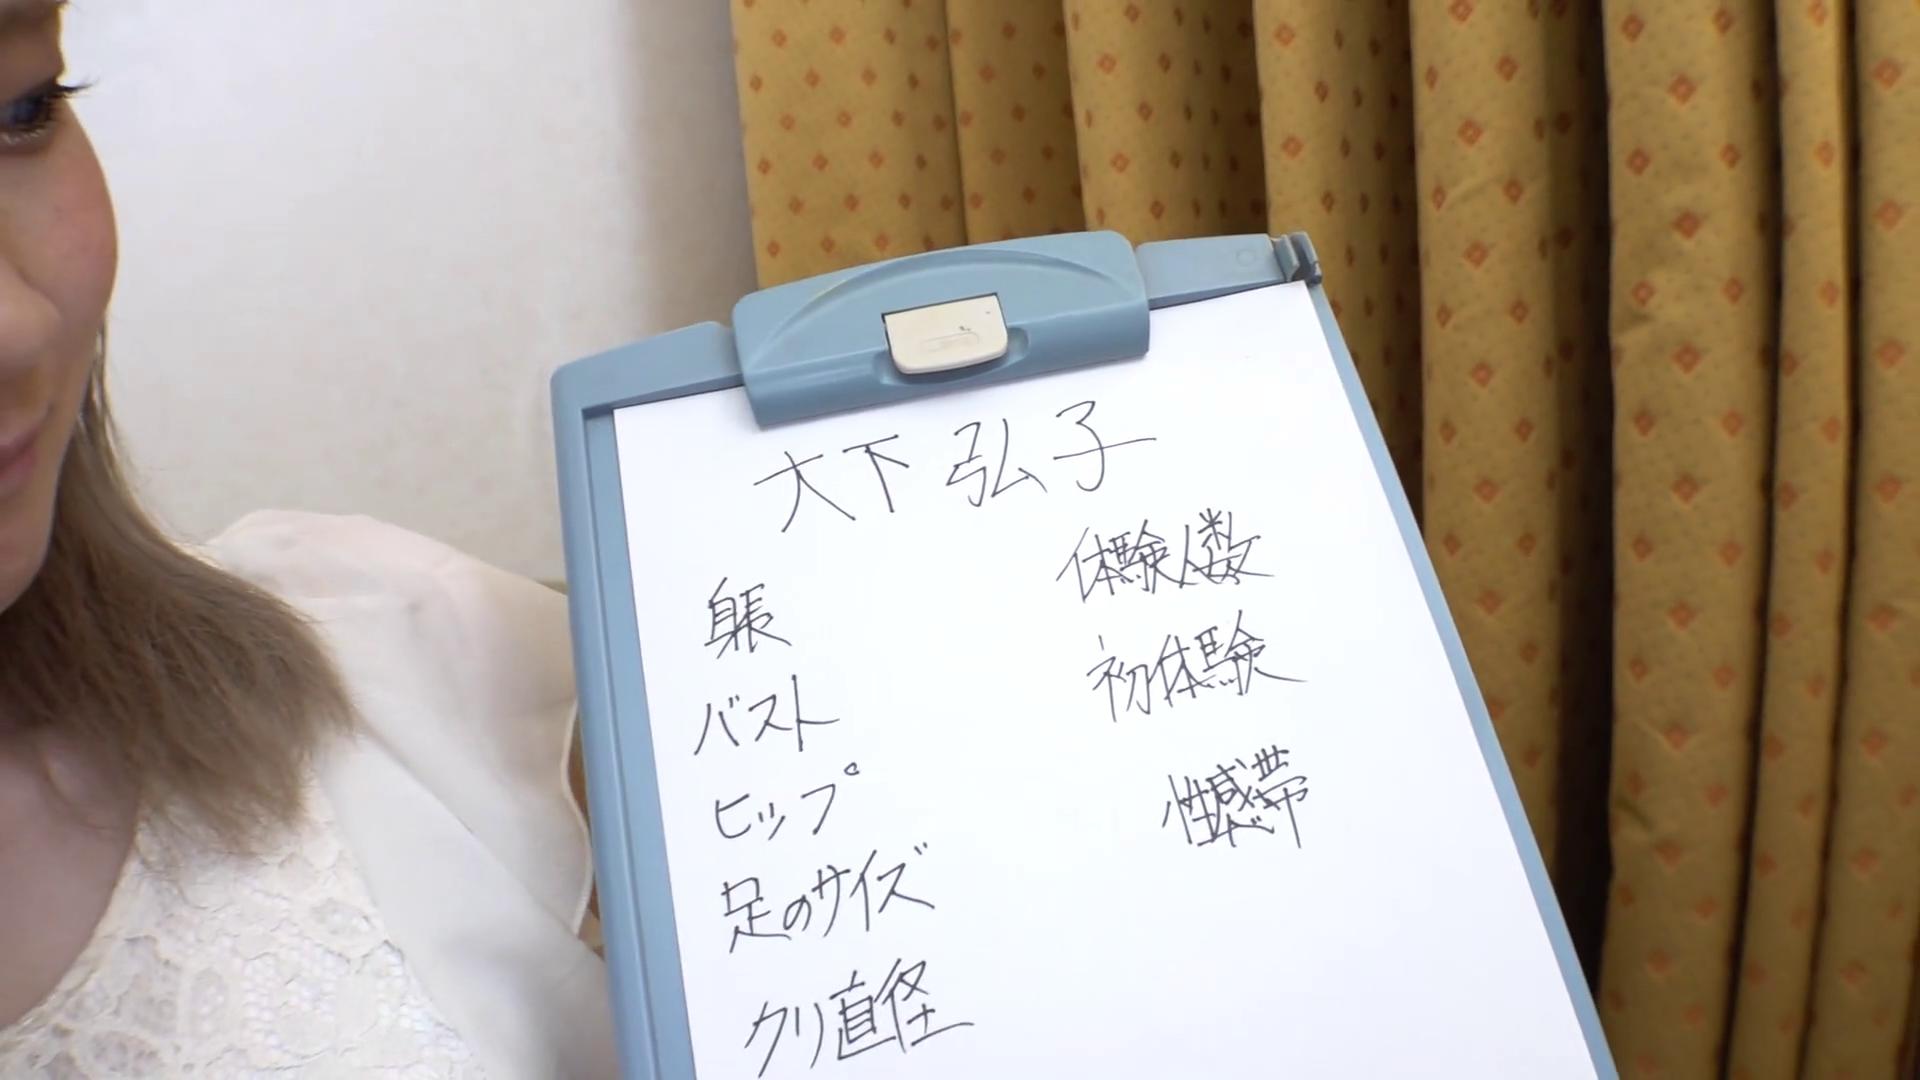 大下 弘子
身長
バスト
ヒップ
足のサイズ
クリ直径
体験人数
初体験
性感帯